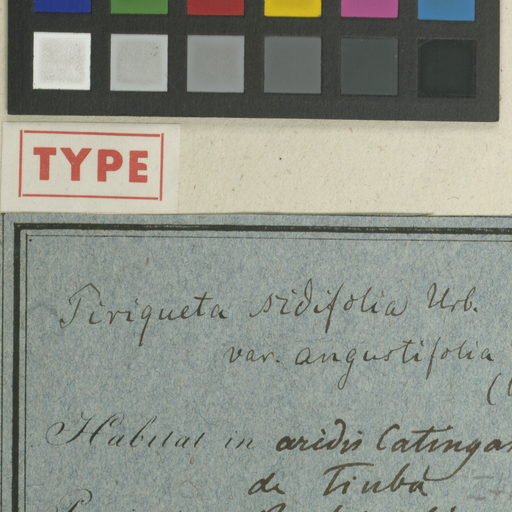 TYPE
Piriqueta sidifolia Urb.
var. angustifolia
(
Habitat in aridis Catingas
de Tiuba